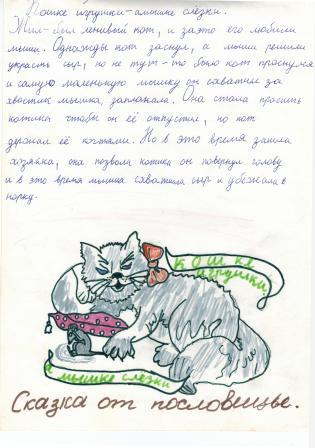 Кошке игрушки-мышке слёзки.
Жил-был ленивый кот, и за это его любили
мыши. Однажды кот заснул, а мыши решили
украсть сыр, но не тут-то было кот проснулся
и самую маленькую мышку он схватил за
хвостик мышка, заплакала. Она стала просить
котика чтобы он её отпустил, но кот
держал её когтями. Но в это время зашла
хозяйка, она позвала котика он повернул голову
и в это время мышка схватила сыр и убежала в
норку.
Кошке
игрушки,
а мышке слезки
Сказка от пословицы.